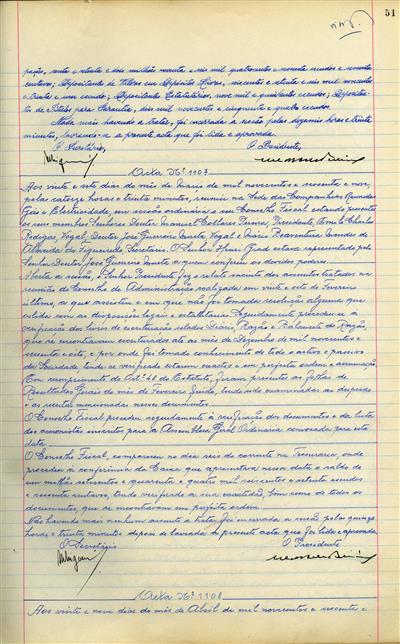 51
pação, sete e oitenta e dois milhões noventa e seis mil quatrocentos e sessenta escudos e sessenta
centavos; Depositante de Valores em Depósitos Livres, seiscentos e oitenta e seis mil novecentos
e trinta e um escudos; Depositantes Estatutários, nove mil e quinhentos escudos; Deposita-
de Títulos para Garantia, dois mil novecentos e cinquenta e quatro escudos.
Nada mais havendo a tratar, foi encerrada a sessão pelas dezasseis horas e trinta
minutos, lavrando-se a presente acta que foi lida e aprovada.
O Secretário, O Presidente,
Acta Nº 1107
Aos vinte e sete dias do mês de Março de mil novecentos e sessenta e nove,
pelas catorze horas e trinta minutos, reuniu na Sede das Companhias Reunidas
Gás e Electricidade, em sessão ordinária o seu Conselho Fiscal estando presentes
os seus membros Senhores Doutor Manuel Collares Pereira, Presidente, Charles
Rodrigas, Vogal, Doutor José Guerreiro Murta, Vogal e Mário Boaventura Mendes de
Almeida de Figueiredo, Secretário. O Senhor Henri Grad esteve representado pelo
Senhor Doutor José Guerreiro Murta a quem conferiu os devidos poderes.
Aberta a sessão, o Senhor Presidente fez o relato sucinto dos assuntos tratados na
reunião do Conselho de Administração realizada em vinte e sete de Fevereiro
último, a que assistiu e em que não foi tomada resolução alguma que
colida com as disposições legais e estatutárias. Seguidamente procedeu-se à
verificação dos livros de escrituração selados Diário, Razão e Balancete do Razão,
que se encontravam escriturados até ao mês de Dezembro de mil novecentos e
sessenta e oito, e por onde foi tomado conhecimento de todo o activo e passivo
da Sociedade, tendo-se verificado estarem exactos e em perfeita ordem e arrumação.
Em cumprimento do Artº 41 do Estatuto, foram presentes as folhas de
Resultados Gerais do mês de Fevereiro findo, tendo sido examinadas as despesas
e as receitas mencionadas nesses documentos.
O Conselho Fiscal procedeu seguidamente à verificação dos documentos e da lista
dos accionistas inscritos para a Assembleia Geral Ordinária convocada para esta
data.
O Conselho Fiscal, compareceu no dia seis do corrente na Tesouraria, onde
procedeu à conferência da Caixa que apresentava nessa data o saldo de
um milhão setecentos e quarenta e quatro mil seiscentos e setenta escudos
e sessenta centavos, tendo verificado a sua exactidão, bem como de todos os
documentos, que se encontravam em perfeita ordem.
Não havendo mais nenhum assunto a tratar, foi encerrada a sessão pelas quinze
horas e trinta minutos depois de lavrada a presente acta que foi lida e aprovada.
O Secretário O Presidente
Acta Nº 1108
Aos vinte e nove dias do mês de Abril de mil novecentos e sessenta e